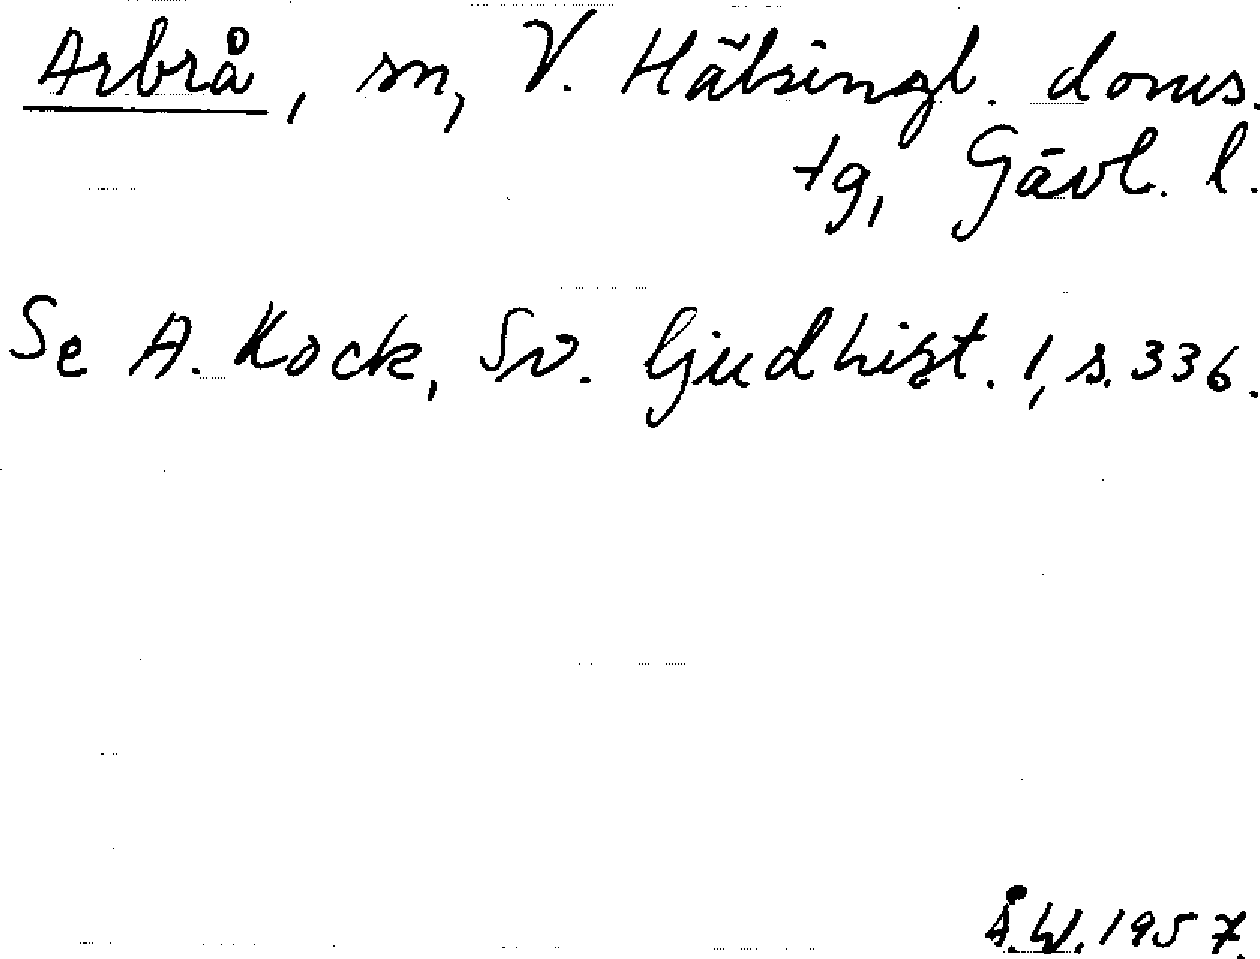 Arbrå, sn, V. Hälsingl. doms.
tg, Gävl. l.
Se A. Kock, Sv. ljudhist. 1, s. 336.
Å.W. 1957.